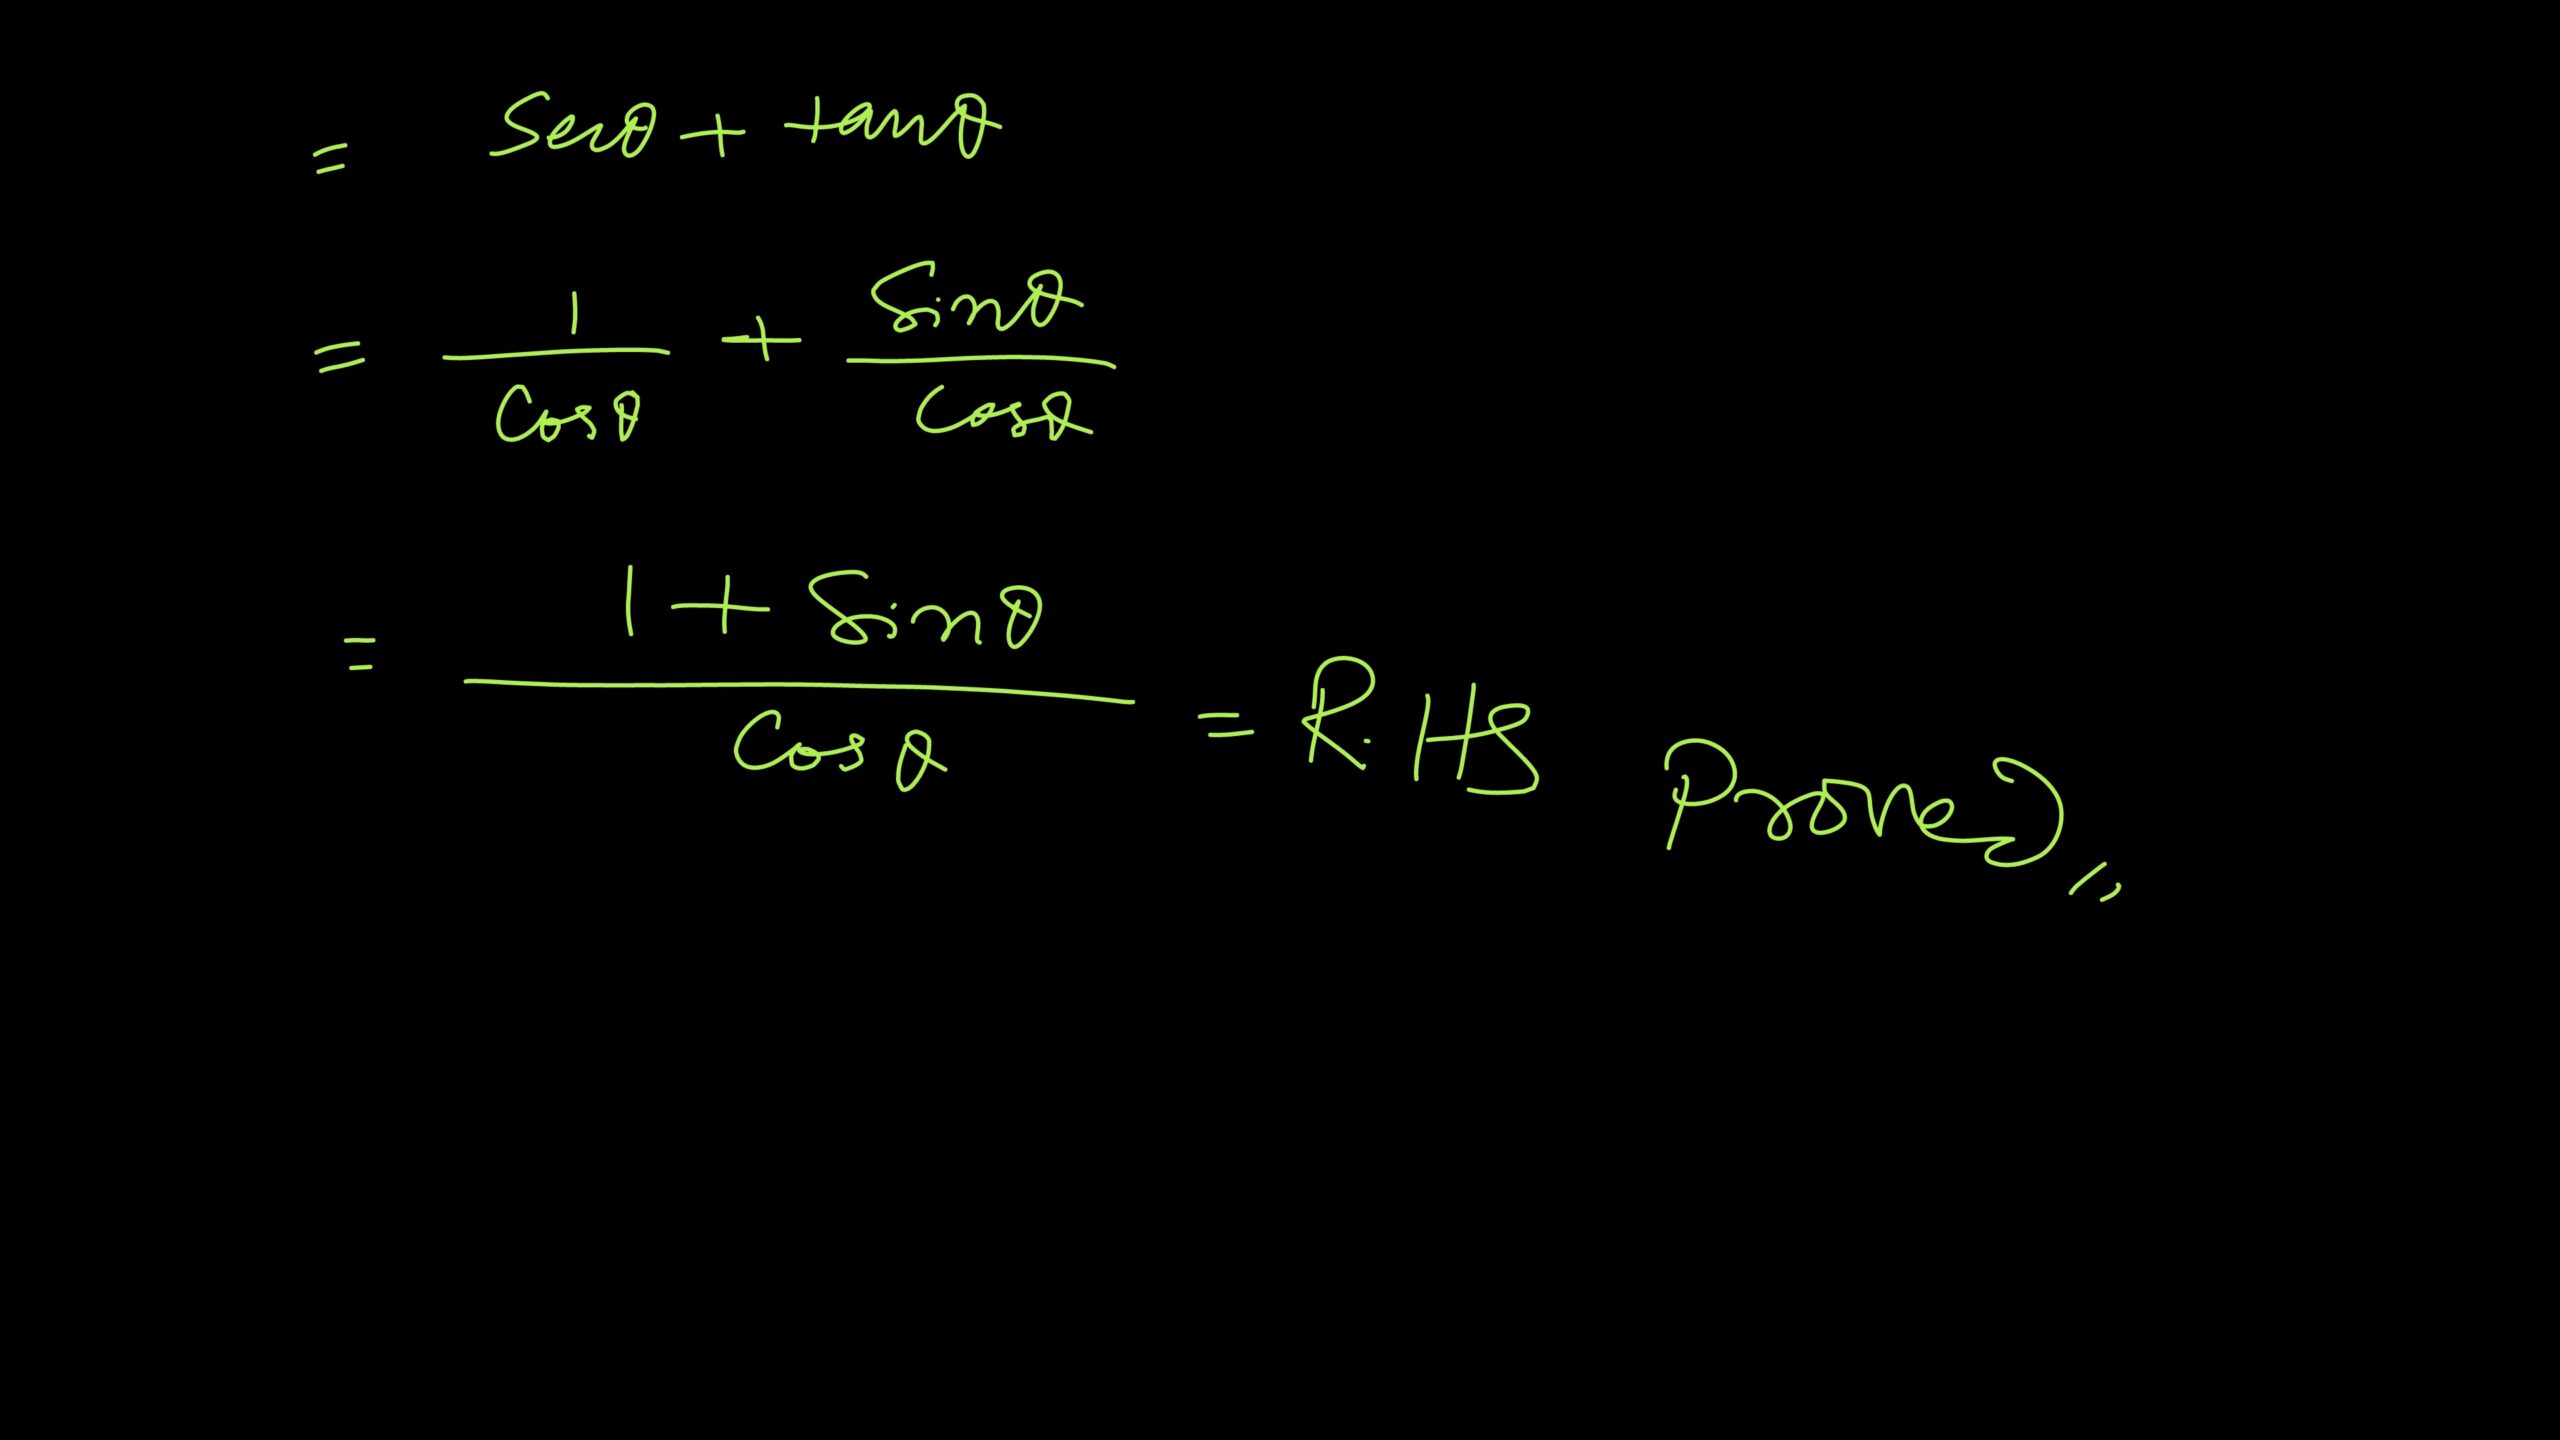 = Secθ + tanθ
= 1/Cosθ + Sinθ/Cosθ
= (1 + Sinθ)/Cosθ = R.HS Proved,,